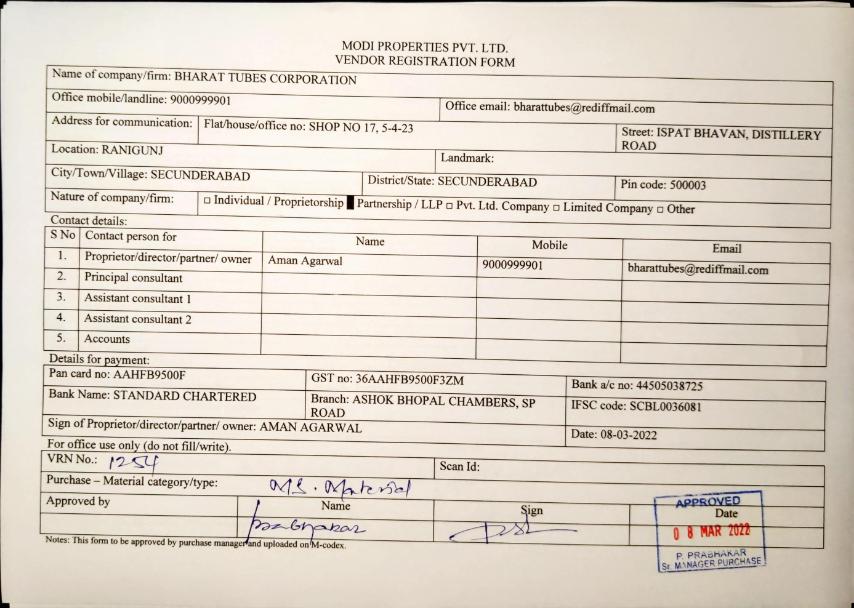 MODI PROPERTIES PVT. LTD.
VENDOR REGISTRATION FORM
Name of company/firm: BHARAT TUBES CORPORATION
Office mobile/landline: 9000999901 Office email: bharattubes@rediffmail.com
Address for communication: Flat/house/office no: SHOP NO 17, 5-4-23 Street: ISPAT BHAVAN, DISTILLERY
ROAD
Location: RANIGUNJ Landmark:
City/Town/Village: SECUNDERABAD District/State: SECUNDERABAD Pin code: 500003
Nature of company/firm: □ Individual / Proprietorship ■ Partnership / LLP □ Pvt. Ltd. Company □ Limited Company □ Other
Contact details:
S No Contact person for Name Mobile Email
1. Proprietor/director/partner/ owner Aman Agarwal 9000999901 bharattubes@rediffmail.com
2. Principal consultant
3. Assistant consultant 1
4. Assistant consultant 2
5. Accounts
Details for payment:
Pan card no: AAHFB9500F GST no: 36AAHFB9500F3ZM Bank a/c no: 44505038725
Bank Name: STANDARD CHARTERED Branch: ASHOK BHOPAL CHAMBERS, SP
ROAD IFSC code: SCBL0036081
Sign of Proprietor/director/partner/ owner: AMAN AGARWAL Date: 08-03-2022
For office use only (do not fill/write).
VRN No.: 1254 Scan Id:
Purchase – Material category/type: MS. Material
Approved by Name Sign Date
Prabhakar
APPROVED
08 MAR 2022
P. PRABHAKAR
Sr. MANAGER PURCHASE
Notes: This form to be approved by purchase manager and uploaded on M-codex.